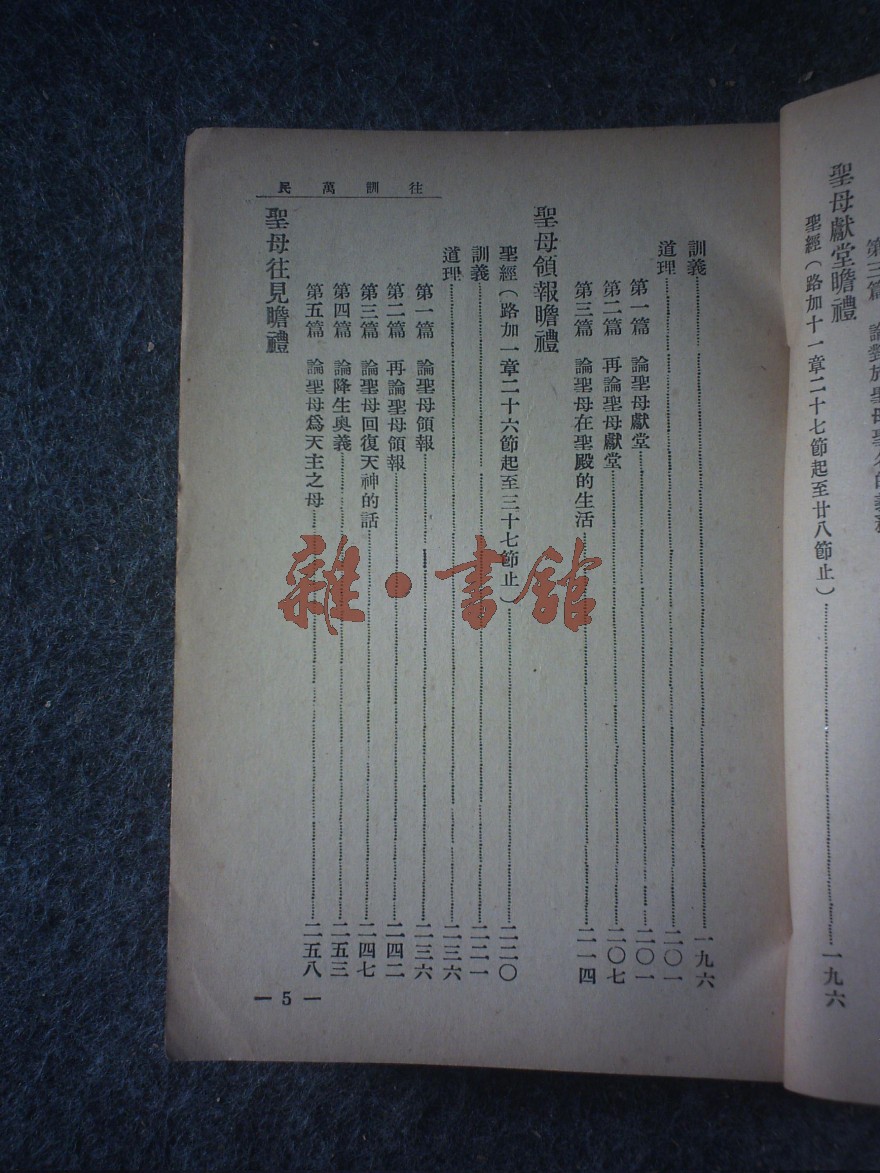 第三篇 論對於聖母聖父的義務
聖母獻堂瞻禮
聖經(路加十一章二十七節起至廿八節止)一九六
往訓萬民
訓義一九六
道理二〇一
第一篇 論聖母獻堂二〇一
第二篇 再論聖母獻堂二〇七
第三篇 論聖母在聖殿的生活二一四
聖母領報瞻禮
聖經(路加一章二十六節起至三十七節止)二二〇
訓義二二一
道理二三六
第一篇 論聖母領報二三六
第二篇 再論聖母領報二四二
第三篇 論聖母回復天神的話二四七
第四篇 論降生奧義二五三
第五篇 論聖母爲天主之母二五八
聖母往見瞻禮
— 5 —
雜·書館